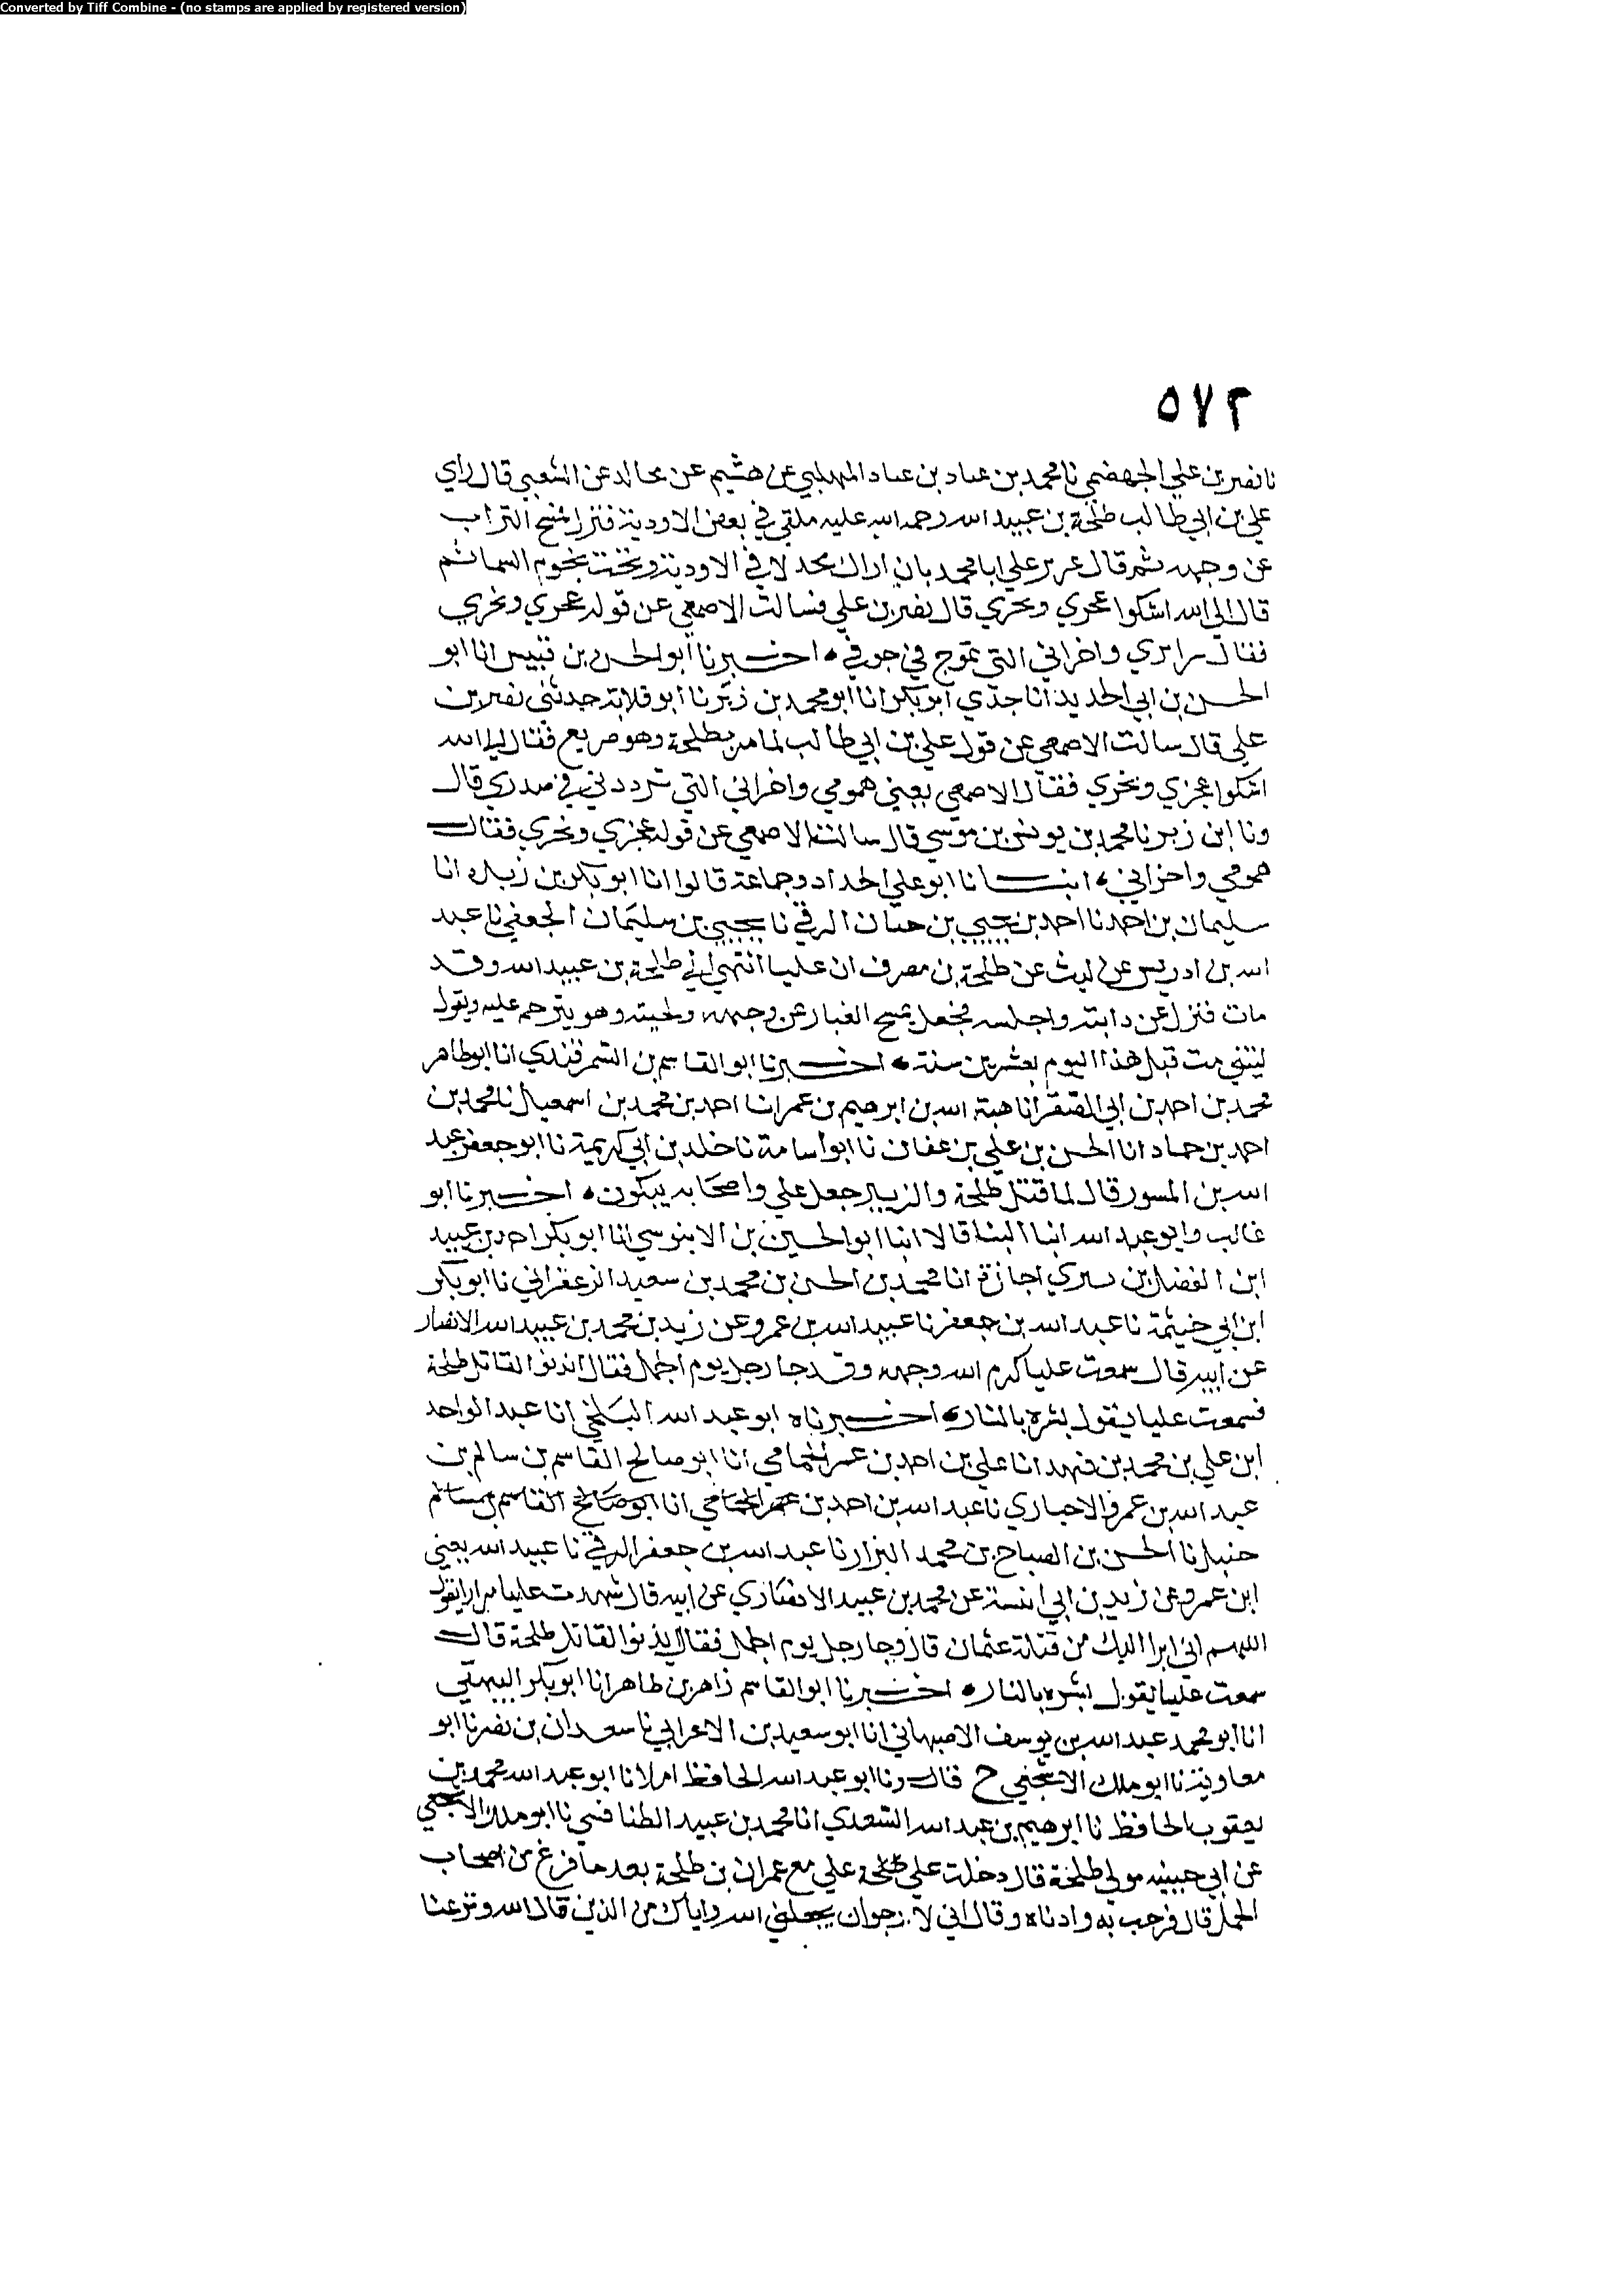 Converted by Tiff Combine - (no stamps are applied by registered version)
٥٧٢
نا نصر بن علي الجهضمي نا محمد بن عباد بن عباد المهلبي عن هشيم عن مجالد عن الشعبي قال راي
علي بن ابي طالب طلحة بن عبيد الله رحمه الله عليه ملقي في بعض الاودية فنزل فمسح التراب
عن وجهه ثم قال عزيز علي ابا محمد بان اراك مجدلا في الاودية وتحت نجوم السما ثم
قال الي الله اشكوا عجري وبجري قال نصر بن علي فسالت الاصمعي عن قوله عجري وبجري
فقال سرايري واحزاني التي تموج في جوفي ٥ اخبرنا ابو الحسن بن قبيس انا ابو
الحسن بن ابي الحديد انا جدي ابو بكر انا ابو محمد بن زبر نا ابو قلابة حدثني نصر بن
علي قال سالت الاصمعي عن قول علي بن ابي طالب لما مر بطلحة وهو صريع فقال الي الله
اشكوا عجزي وبجري فقال الاصمعي يعني همومي واحزاني التي تردد ني في صدري قال
ونا ابن زبر نا محمد بن يونس بن موسي قال سالت الاصمعي عن قوله عجزي وبجري فقال
همومي واحزاني ٥ انبانا ابو علي الحداد وجماعة قالوا انا ابو بكر بن زيده انا
سليمان بن احمد نا احمد بن يحيي بن حنان الرقي نا يحيي بن سليمان الجعفي نا عبد
الله بن ادريس عن ليث عن طلحة بن مصرف ان عليا انتهي الي طلحة بن عبيد الله وقد
مات فنزل عن دابته واجلسه فجعل يمسح الغبار عن وجهه ولحيته وهو يترحم عليه ويقول
ليتني مت قبل هذا اليوم بعشرين سنة ٥ اخبرنا ابو القاسم بن السمرقندي انا ابو طاهر
محمد بن احمد بن ابي الصقر انا هبة الله بن ابرهيم بن عمر انا احمد بن محمد بن اسمعيل نا محمد بن
احمد بن حماد انا الحسن بن علي بن عفان نا ابو اسامة نا خلد بن ابي كريمة نا ابو جعفر عبد
الله بن المسور قال لما قتل طلحة والزبير جعل علي واصحابه يبكون ٥ اخبرنا ابو
غالب وابو عبد الله ابنا البنا قالا انبا ابو الحسين بن الابنوسي انا ابو بكر احمد بن عبيد
ابن الفضل بن سري اجازة انا محمد بن الحسن بن محمد بن سعيد الزعفراني نا ابو بكر
ابن ابي خيثمة نا عبد الله بن جعفر نا عبيد الله بن عمرو عن زيد بن محمد بن عبيد الله الانصار
عن ابيه قال سمعت عليا كرم الله وجهه وقد جا رجل يوم الجمل فقال ائذنوا لقاتل طلحة
فسمعت عليا يقول بشره بالنار ٥ اخبرناه ابو عبد الله البلخي انا عبد الواحد
ابن علي بن محمد بن فهد انا علي بن احمد بن عمر الحمامي انا ابو صالح القاسم بن سالم بن
عبد الله بن عمرو الاخباري نا عبد الله بن احمد بن عمر الحمامي انا ابو صالح القاسم بن سالم
حنبل نا الحسن بن الصباح بن محمد البزار نا عبد الله بن جعفر الرقي نا عبيد الله يعني
ابن عمرو عن زيد بن ابي انيسة عن محمد بن عبيد الانصاري عن ابيه قال شهدت عليا مرارا يقول
اللهم اني ابرا اليك من قتلة عثمان قال وجا رجل يوم الجمل فقال ايذنوا لقاتل طلحة قال
سمعت عليا يقول بشره بالنار ٥ اخبرنا ابو القاسم زاهر بن طاهر انا ابو بكر البيهقي
انا ابو محمد عبد الله بن يوسف الاصبهاني انا ابو سعيد بن الاعرابي نا سعدان بن نصر نا ابو
معاوية نا ابو ملك الاشجعي ح قال ونا ابو عبد الله الحافظ املا نا ابو عبد الله محمد بن
يعقوب الحافظ نا ابرهيم بن عبد الله السعدي انا محمد بن عبيد الطنافسي نا ابو ملك الاشجعي
عن ابي حبيبه مولي طلحة قال دخلت علي طلحة علي مع عمران بن طلحة بعد ما فرغ من اصحاب
الجمل قال فرحب به وادناه وقال اني لارجوان يجعلني الله واياك من الذين قال الله ونزعنا